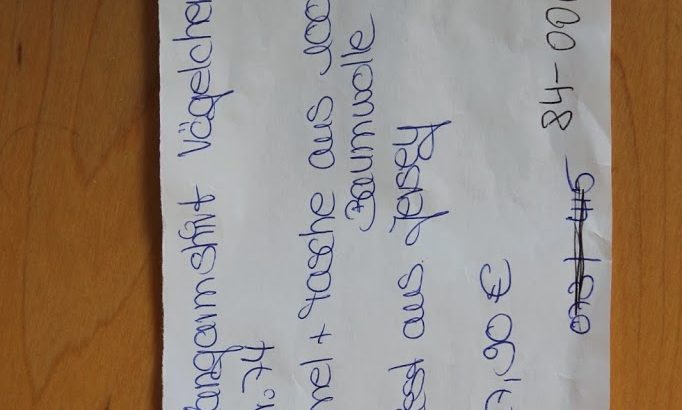 Langarmshirt Vögelchen
r. 74
mel + Tasche aus 100
Baumwolle
est aus Jersey
7,90 €
84-00